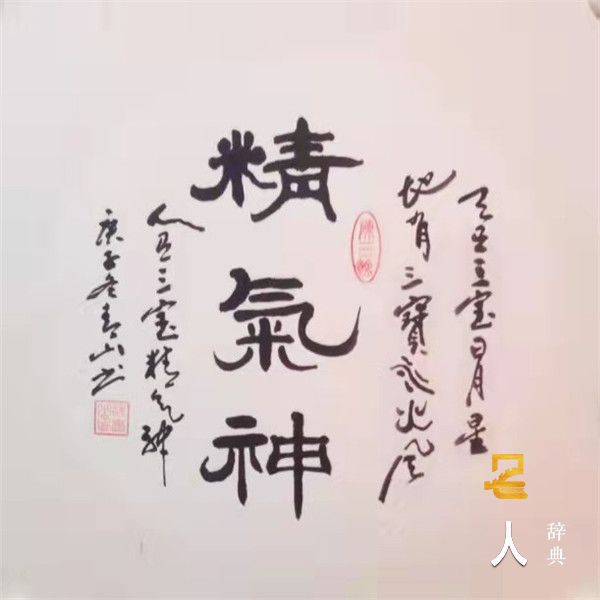 天有三宝日月星
地有三寶水火风
精氣神
人有三宝精气神
庚子冬青山书
名人
辞典